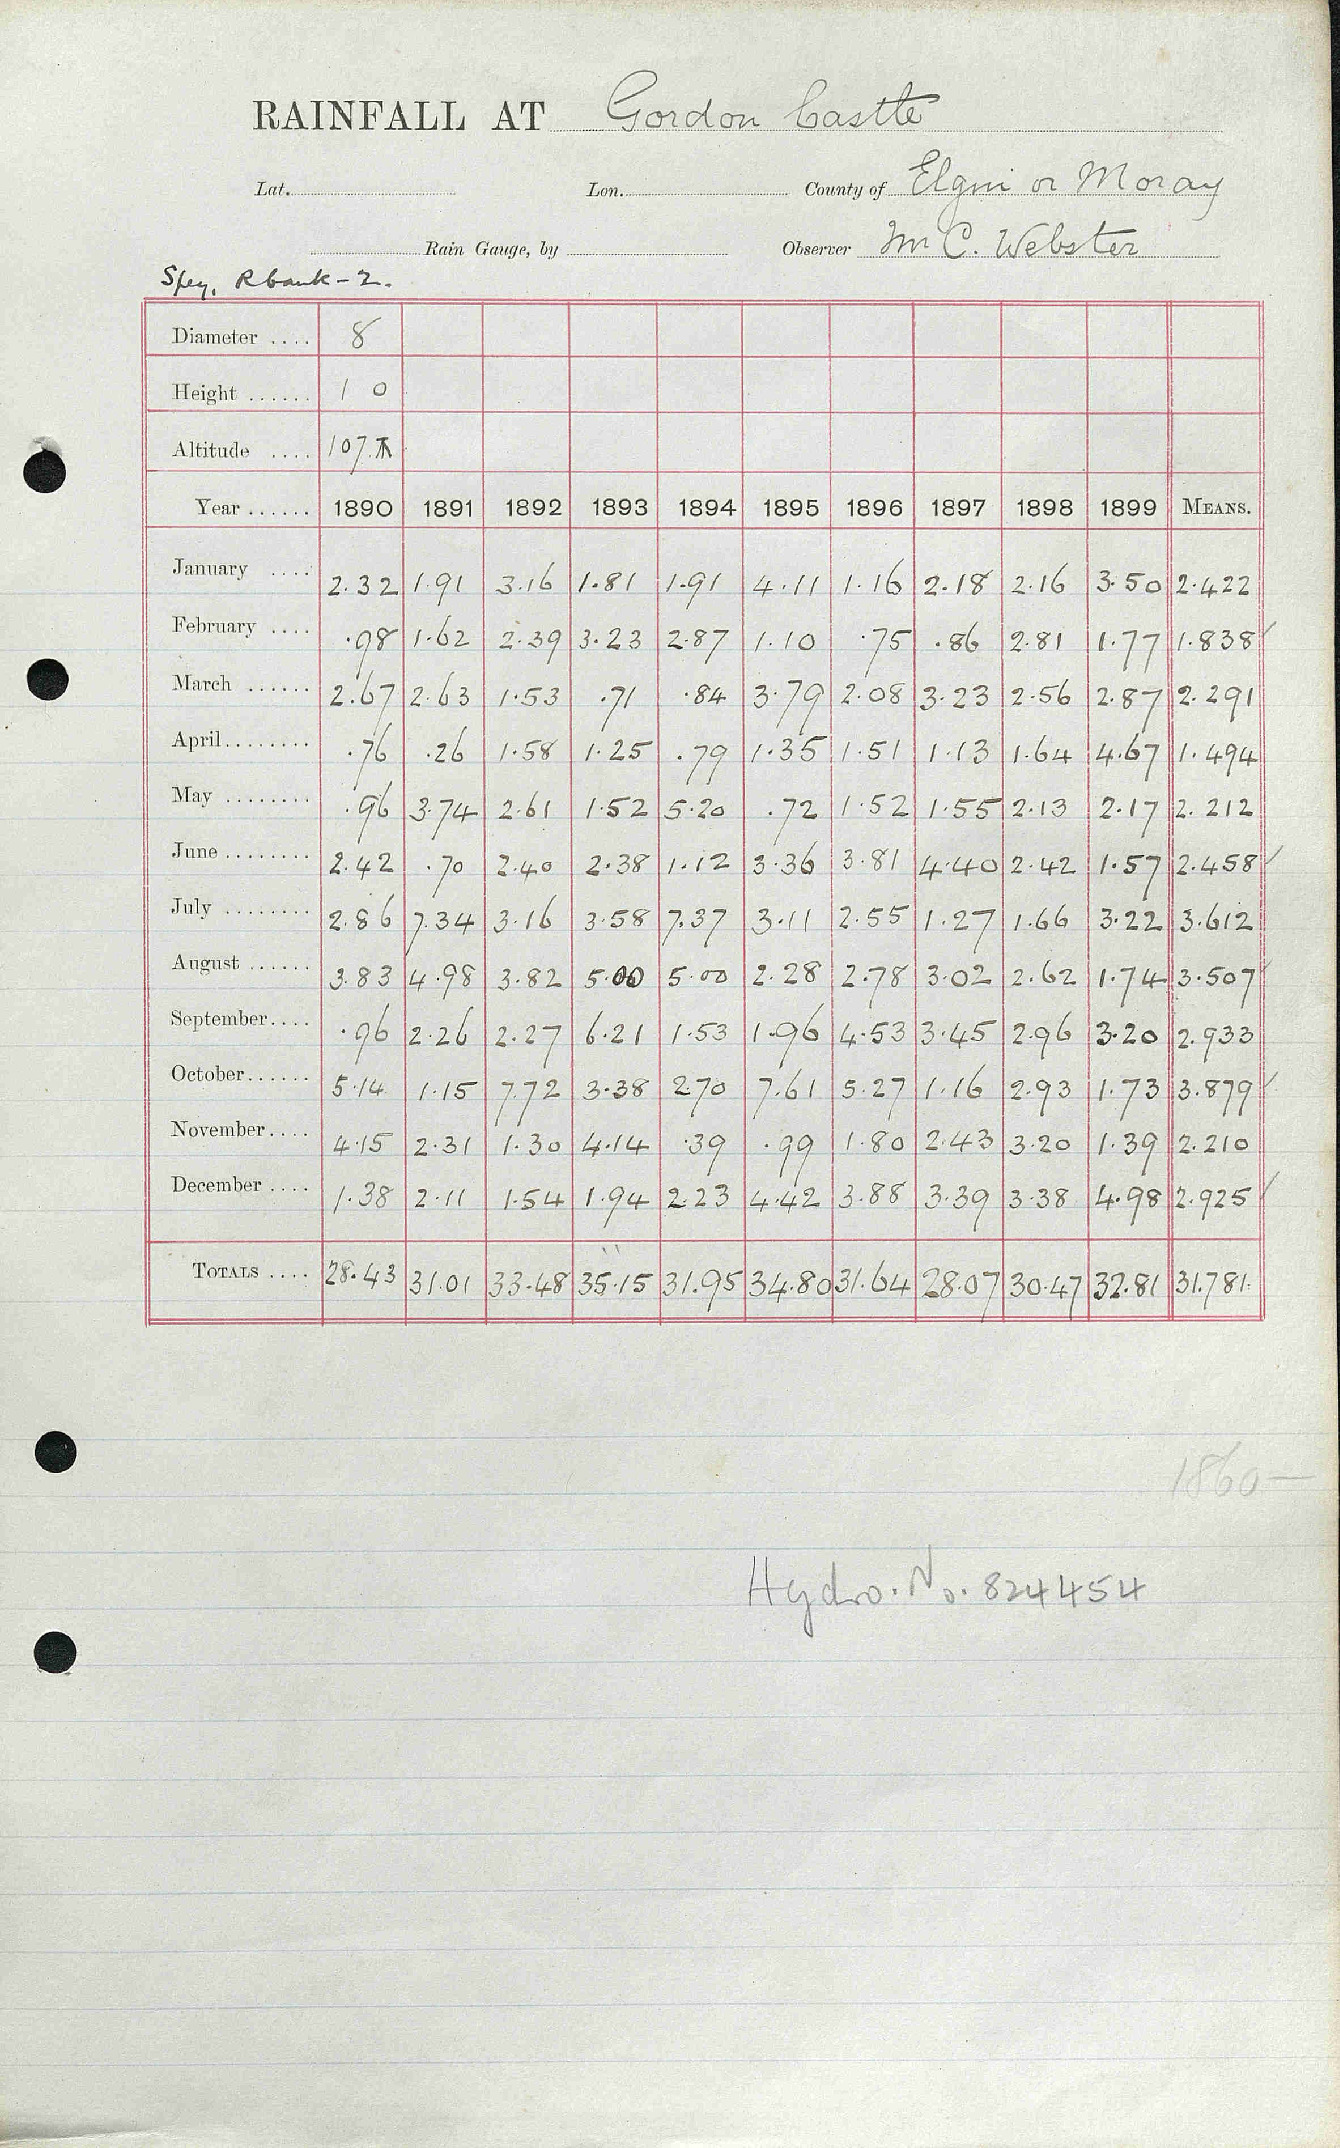 RAINFALL AT Gordon Castle
Lat. Lon. County of Elgin or Moray
Rain Gauge, by Observer Mr C. Webster
Spey, R bank - 2.
Diameter .... 8
Height ...... 1 0
Altitude .... 107.
Year ...... 1890 1891 1892 1893 1894 1895 1896 1897 1898 1899 MEANS.
January .... 2.32 1.91 3.16 1.81 1.91 4.11 1.16 2.18 2.16 3.50 2.422
February .... .98 1.62 2.39 3.23 2.87 1.10 .75 .86 2.81 1.77 1.838
March ...... 2.67 2.63 1.53 .71 .84 3.79 2.08 3.23 2.56 2.87 2.291
April........ .76 .26 1.58 1.25 .79 1.35 1.51 1.13 1.64 4.67 1.494
May ........ .96 3.74 2.61 1.52 5.20 .72 1.52 1.55 2.13 2.17 2.212
June ........ 2.42 .70 2.40 2.38 1.12 3.36 3.81 4.40 2.42 1.57 2.458
July ........ 2.86 7.34 3.16 3.58 7.37 3.11 2.55 1.27 1.66 3.22 3.612
August ...... 3.83 4.98 3.82 5.00 5.00 2.28 2.78 3.02 2.62 1.74 3.507
September.... .96 2.26 2.27 6.21 1.53 1.96 4.53 3.45 2.96 3.20 2.933
October...... 5.14 1.15 7.72 3.38 2.70 7.61 5.27 1.16 2.93 1.73 3.879
November.... 4.15 2.31 1.30 4.14 .39 .99 1.80 2.43 3.20 1.39 2.210
December .... 1.38 2.11 1.54 1.94 2.23 4.42 3.88 3.39 3.38 4.98 2.925
TOTALS .... 28.43 31.01 33.48 35.15 31.95 34.80 31.64 28.07 30.47 32.81 31.781
1860—
Hydro. No. 824454